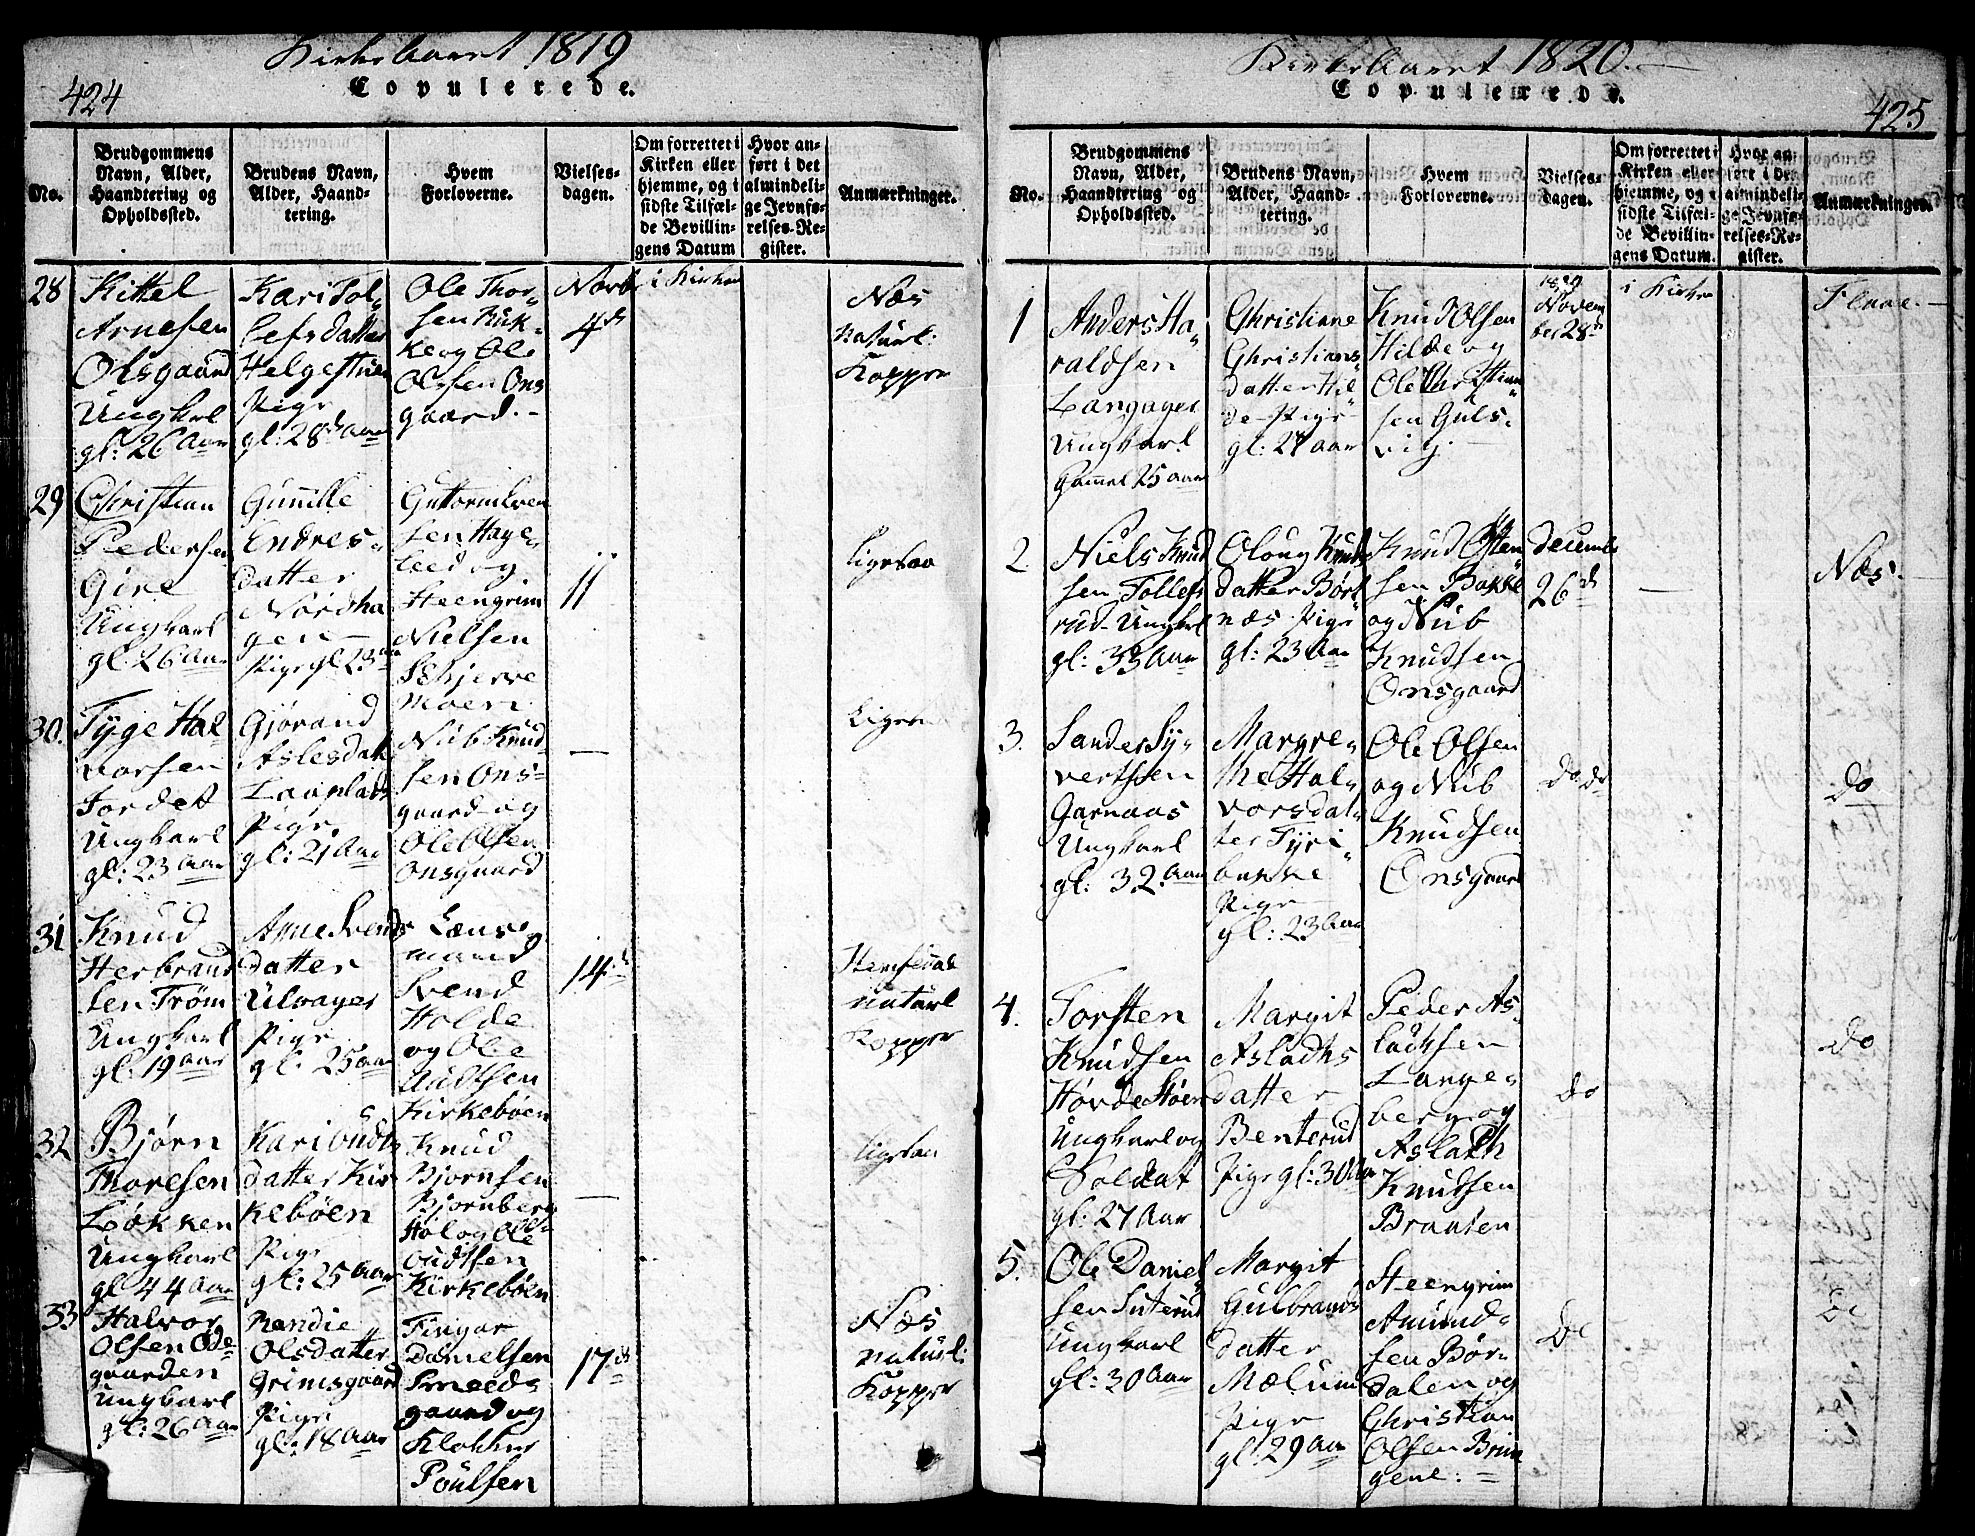 424
Kirkeaaret 1819
Copulerede.
No.
Brudgommens
Navn, Alder,
Haandtering og
Opholdssted.
Brudens Navn,
Alder, Haand-
tering.
Hvem
Forloverne.
Vielses-
dagen.
Om forrettet i
Kirken eller
hjemme, og i
sidste Tilfæl-
de Bevillin-
gens Datum
Hvor an-
ført i det
almindeli-
ge Jevnfø-
relses-Re-
gister.
Anmærkninger.
28
Kittel
Arnesen
Olsgaard
Ungkarl
gl: 26 Aar
Kari Tol-
lefsdatter
Helgestuen
Pige
gl: 28 Aar
Ole Thor-
sen Ruk-
ke og Ole
Olssen Ons
gaard.-
Novbr
4de
i Kirken
Næs
Naturl:
Kopper
29
Christian
Pedersen
Gire
Ungkarl
gl: 26 Aar
Gunille
Endres-
datter
Nordha
gen-
Pige gl. 23 Aar
Guttorm Iver
sen Hage-
leed og
Steengrim
Nielsen
Schjerve
Moen
11
Ligesaa
30.
Tyge Hal-
vorsen
Fordet
Ungkarl
gl: 23 Aar
Gjørand
Aslesdatt
Pige
gl: 21 Aar
Nub Knud-
sen Ons-
gaard og
Ole Olsen
Onsgaard
—
31
Knud
Herbrand
sen Trøm
Ungkarl
gl: 19 aar
Anne Svends
datter
Ulvager
Pige
gl. 25 aar
Læns-
mand
Svend
Holde
og Ole
Uudtsen
Kirkebøen
14de
Hemsedal
Naturl
Kopper
32
Bjørn
Thoresen
Løkken
Ungkarl
gl 44 Aar
Kari Oudts
datter Kir
kebøen
Pige
gl: 25 Aar
Knud
Bjørnsen
Bjørnberg
Høl og Ole
Oudtsen
Kirkebøen
—
Ligesaa
33
Halvor
Olsen Øde-
gaarden
Ungkarl
gl: 26 Aar
Randie
Olsdatter
Grimsgaard
Pige
gl: 18 Aar
Fingar
Danielsen
Smeeds
gaard og
Klokker
Poulsen
17de
Næs
Naturl:
Kopper
Kirkeaaret 1820.-
Copulerede.
425
No.
Brudgommens
Navn, Alder,
Haandtering og
Opholdssted.
Brudens Navn,
Alder, Haand-
tering.
Hvem
Forloverne.
Vielses-
dagen.
Om forrettet i
Kirken eller
hjemme, og i
sidste Tilfæl-
de Bevillin-
gens Datum.
Hvor an-
ført i det
almindeli-
ge Jevnfø-
relses-Re-
gister.
Anmærkninger.
1
Anders Ha-
raldsen
Langager
Ungkarl
Gammel 25 aar
Christiane
Christians-
datter Hil-
de - Pige
gl: 27 aar
Knud Olsen
Hilde og
Ole Christian-
sen Guls-
vig
1819
Novem
ber 28de
i Kirken
Flaae.-
2.
Niels Knud
sen Tollefs
rud Ungkarl
gl: 33 Aar
Oloug Knuds
datter Børt
næs Pige
gl: 23 Aar
Knud Østen-
sen Bakke
og Nub
Knudsen
Onsgaard
Decembr
26de
—
Næs.
3.
Sander Sy-
vertsen
Garnaas
Ungkarl
gl: 32 Aar
Margre-
the Hal-
vorsdat-
ter Tyri-
bakke
Pige
gl: 23 Aar
Ole Olsen
og Nub
Knudsen
Onsgaard
do do
do
4.
Torsten
Knudsen
Hovde Støen
Ungkarl og
Soldat
gl: 27 Aar
Margit
Aslachs
datter
Benterud
Pige gl: 30 Aar
Peder As-
lachsen
Lange-
berg og
Aslach
Knudsen
Braaten
do
do
5.
Ole Daniel-
sen Suterud
Ungkarl
gl: 30 Aar
Margit
Gulbrands
datter
Mælum
Pige
gl: 29 Aar
Steengrim
Amund-
sen Bør-
dalen og
Christian
Olsen Brin
gene: =
do
do